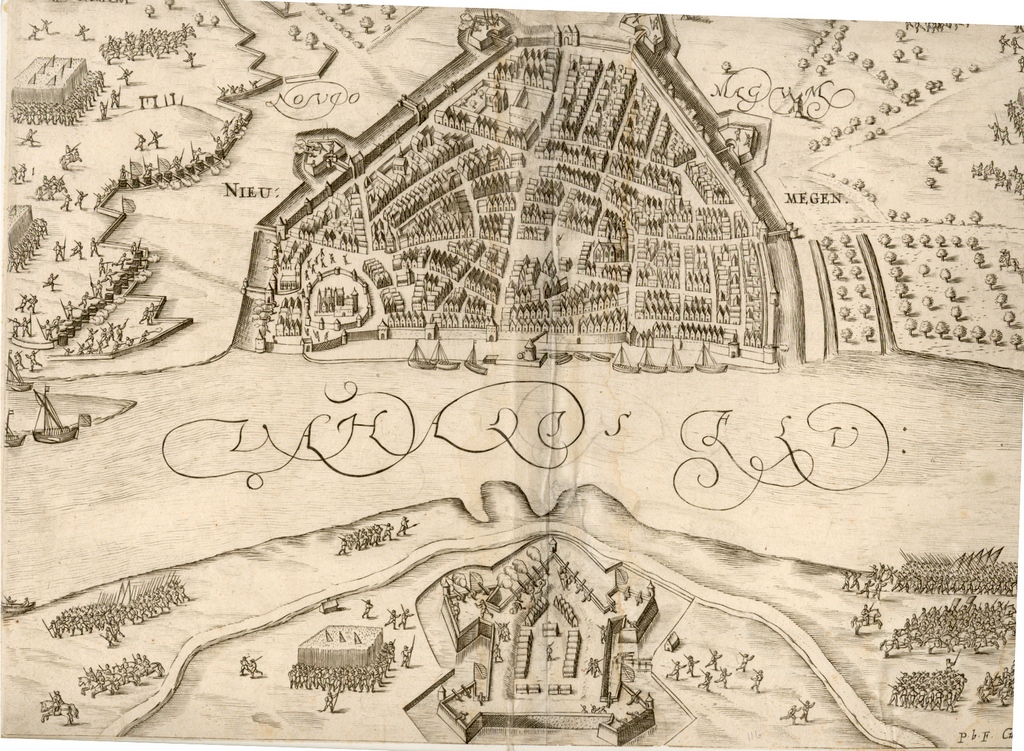 NOVVDO MAGVM
NIEU: MEGEN.
VAHALIS FLV
P. b. F.